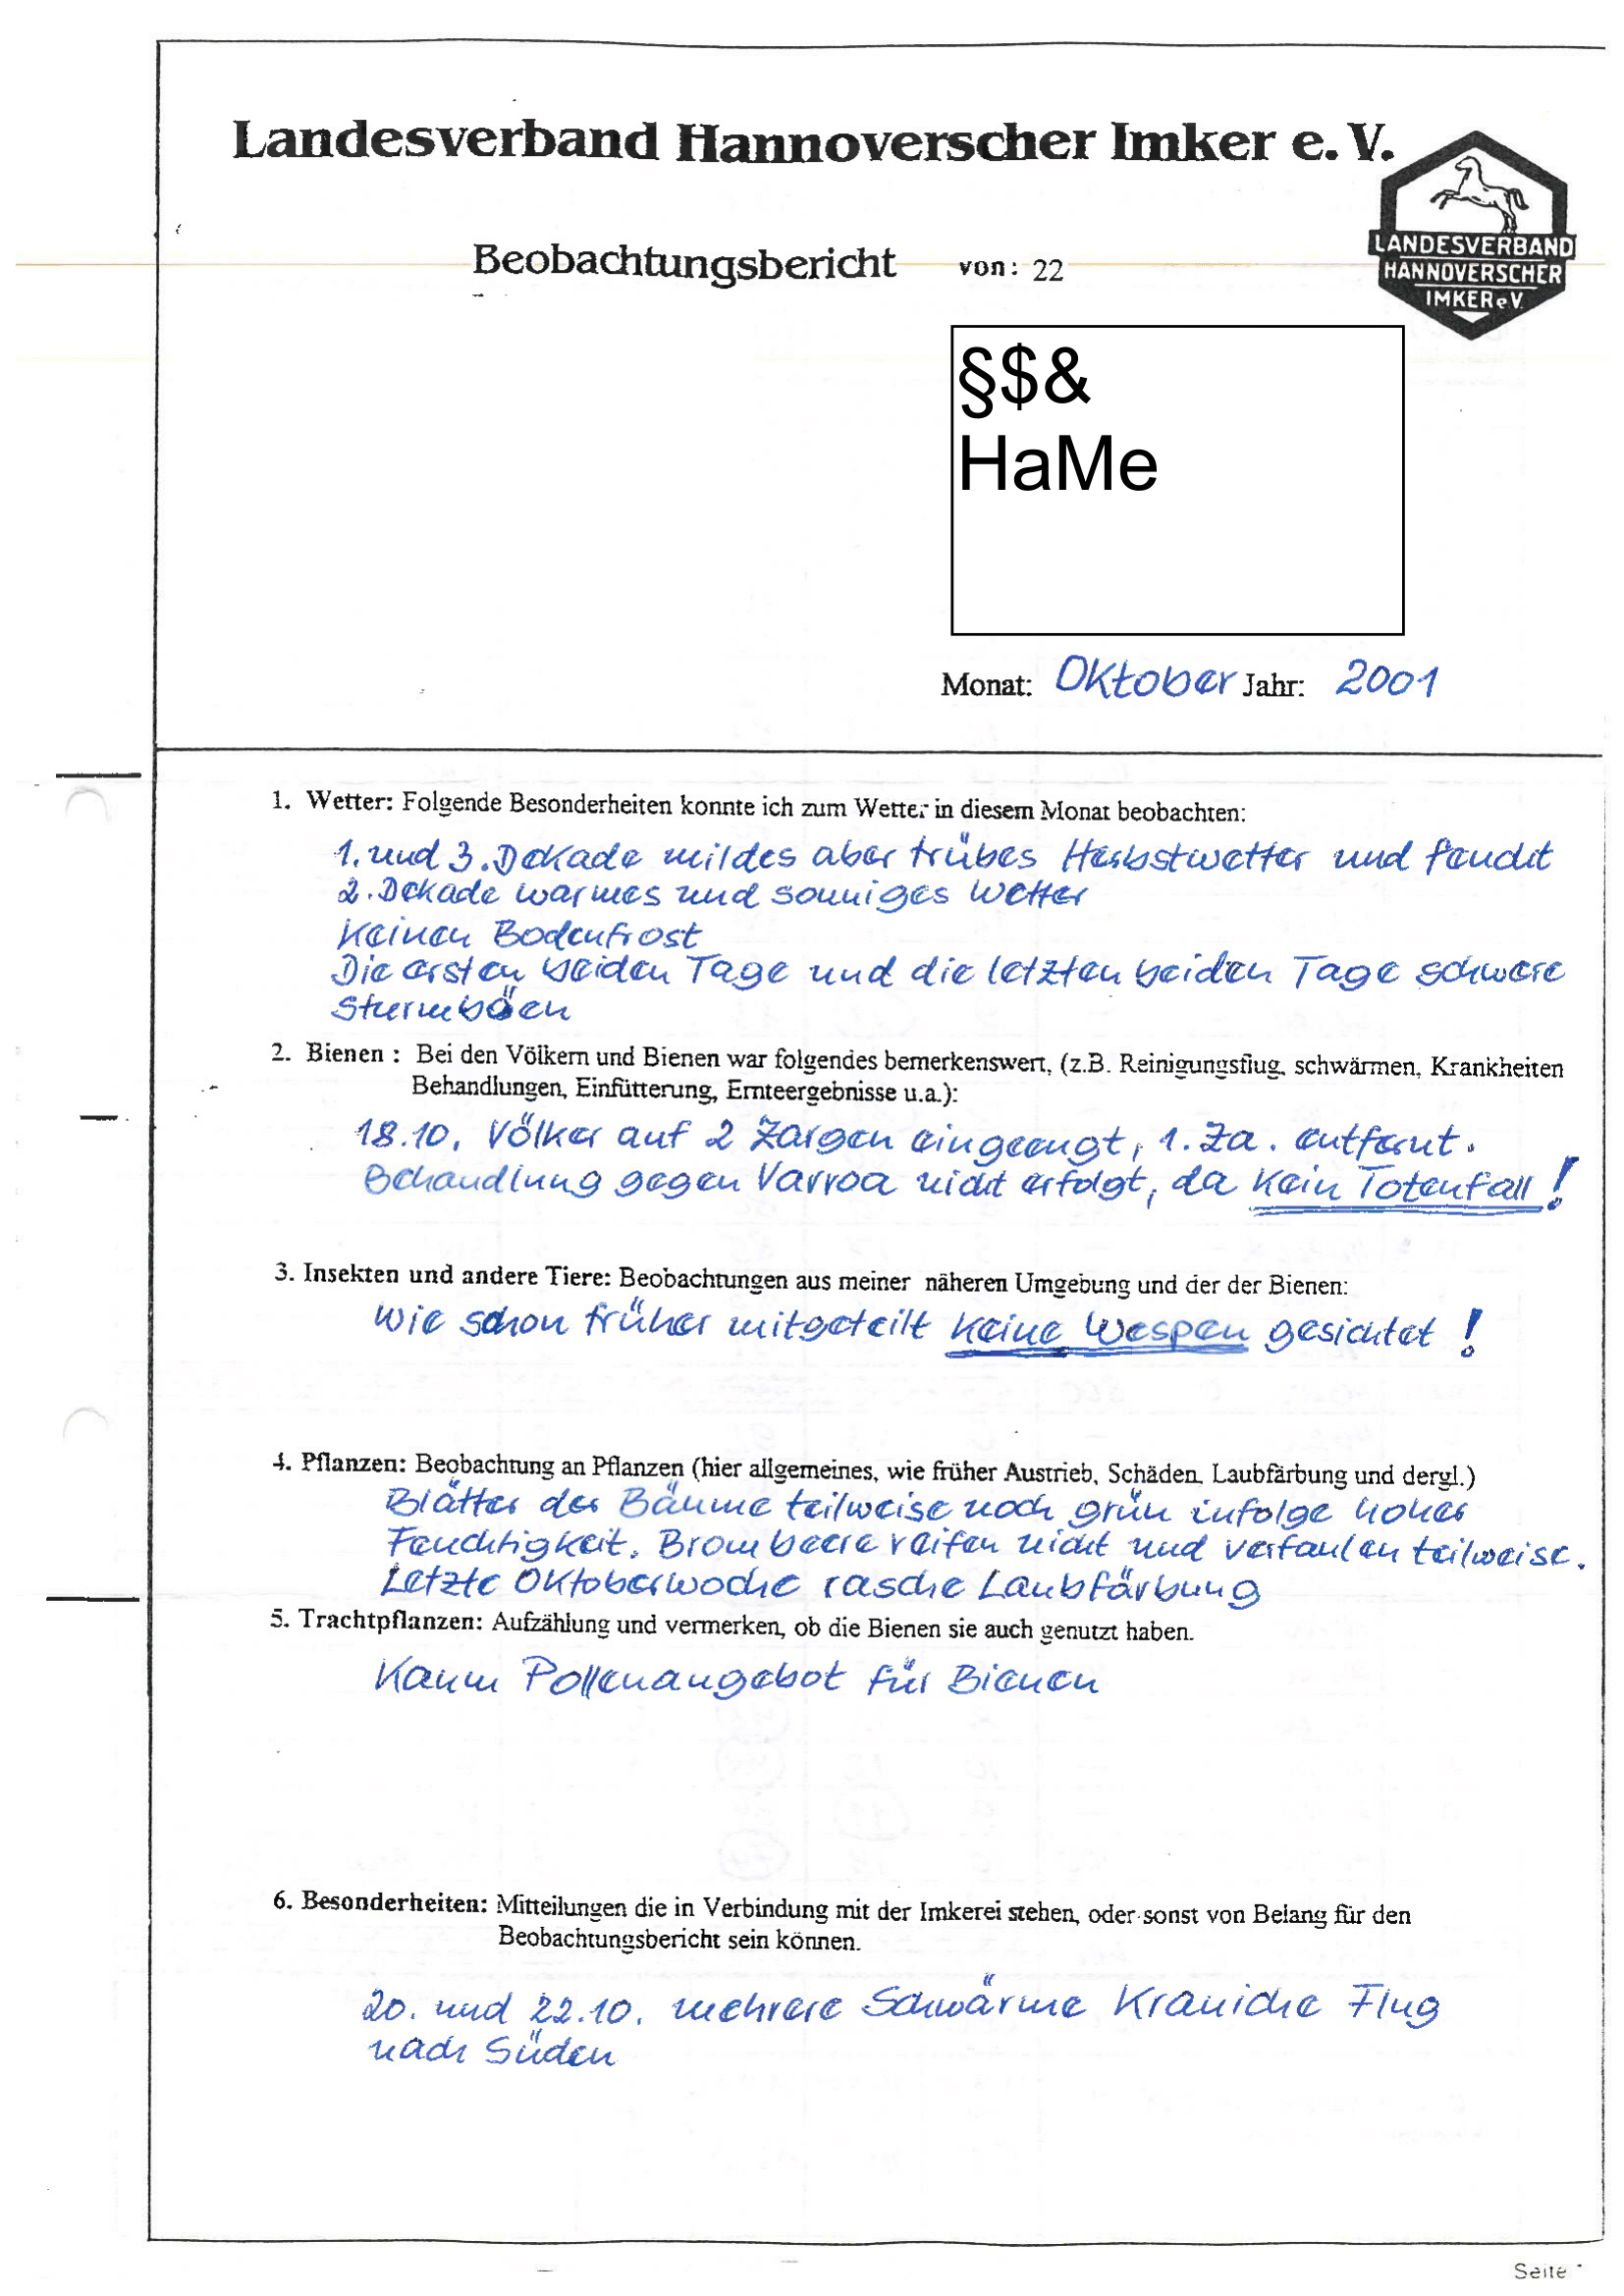 Landesverband Hannoverscher Imker e. V.
LANDESVERBAND
HANNOVERSCHER
IMKER e V.
Beobachtungsbericht von: 22
§$&
HaMe
Monat: Oktober Jahr: 2001
1. Wetter: Folgende Besonderheiten konnte ich zum Wetter in diesem Monat beobachten:
1. und 3. Dekade mildes aber trübes Herbstwetter und feucht
2. Dekade warmes und sonniges Wetter
Keinen Bodenfrost
Die ersten beiden Tage und die letzten beiden Tage schwere
Sturmböen
2. Bienen : Bei den Völkern und Bienen war folgendes bemerkenswert, (z.B. Reinigungsflug, schwärmen, Krankheiten
Behandlungen, Einfütterung, Ernteergebnisse u.a.):
18.10. Völker auf 2 Zargen eingeengt, 1. Za. entfernt.
Behandlung gegen Varroa nicht erfolgt, da kein Totenfall!
3. Insekten und andere Tiere: Beobachtungen aus meiner näheren Umgebung und der der Bienen:
Wie schon früher mitgeteilt keine Wespen gesichtet!
4. Pflanzen: Beobachtung an Pflanzen (hier allgemeines, wie früher Austrieb, Schäden, Laubfärbung und dergl.)
Blätter der Bäume teilweise noch grün infolge hoher
Feuchtigkeit. Brombeere reifen nicht und verfaulen teilweise.
Letzte Oktoberwoche rasche Laubfärbung
5. Trachtpflanzen: Aufzählung und vermerken, ob die Bienen sie auch genutzt haben.
Kaum Pollenangebot für Bienen
6. Besonderheiten: Mitteilungen die in Verbindung mit der Imkerei stehen, oder sonst von Belang für den
Beobachtungsbericht sein können.
20. und 22.10. mehrere Schwärme Kraniche Flug
nach Süden
Seite